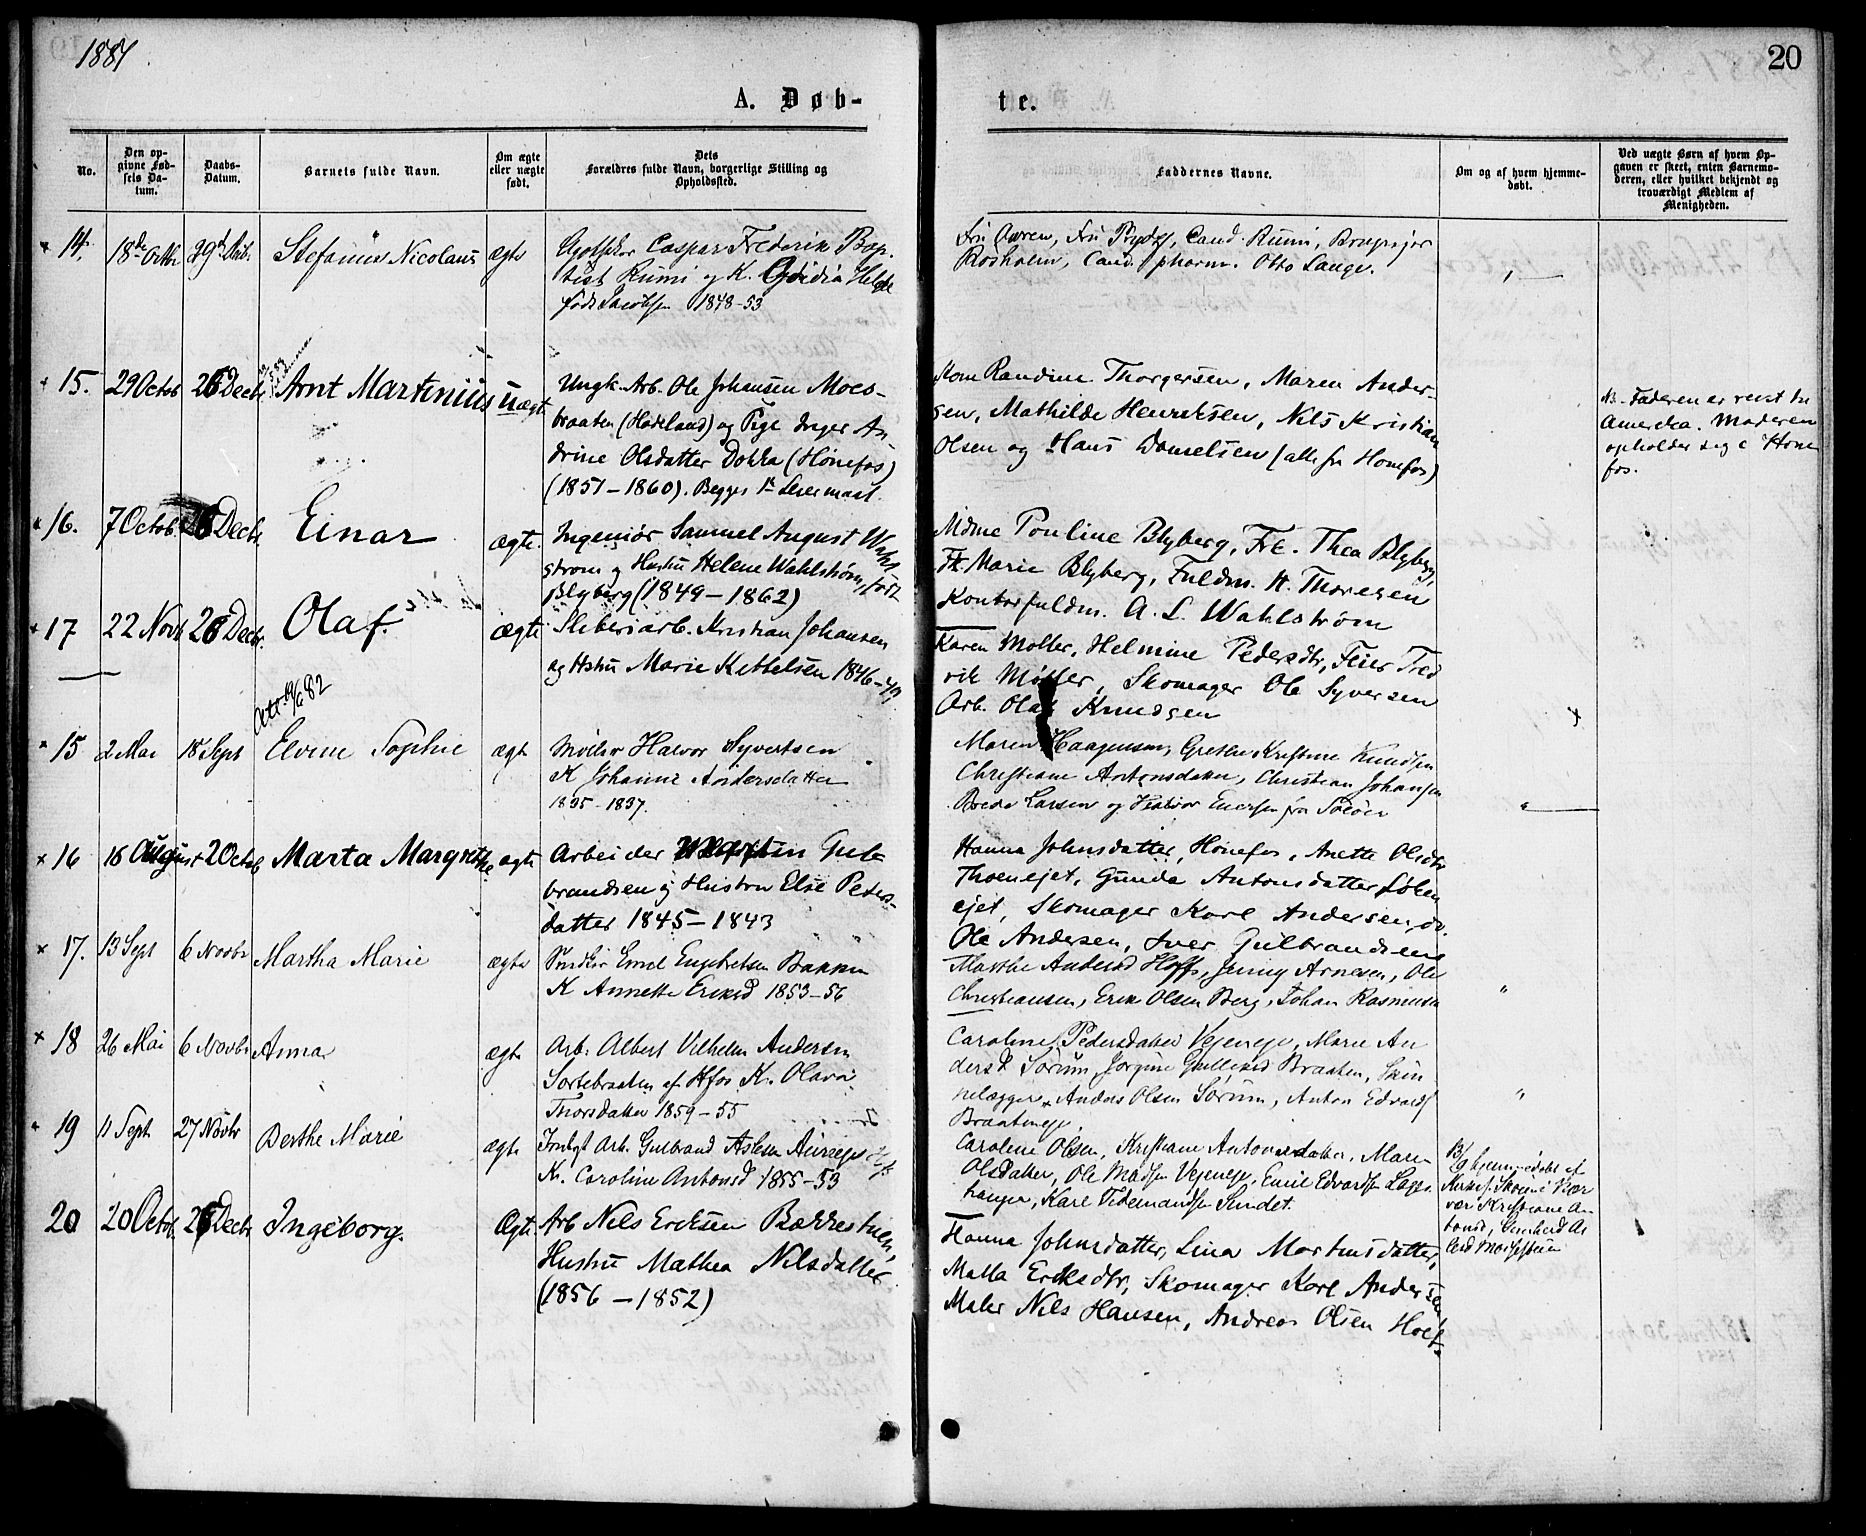 1881
20
A. Døb-
te.
No.
Den op-
givne Fød-
sels Da-
tum.
Daabs-
Datum.
Barnets fulde Navn.
Om ægte
eller uægte
født.
Dets
Forældres fulde Navn, borgerlige Stilling og
Opholdssted.
Faddernes Navne.
Om og af hvem hjemme-
døbt.
Ved uægte Børn af hvem Op-
gaven er skeet, enten Barnemo-
deren, eller hvilket bekjendt og
troværdigt Medlem af
Menigheden.
14. 18de Octbr 29de Stefanus Nicolaus ægte
Caspar Frederik Bap-
tist Rumi og K. Helde
født Jacobsen 1848-53
Fru Fru Cand. Rumi,
Rosholm, Cand. pharm. Otto Lange.
15. 29 Octob 26 Decbr. Arnt Martinius uægt.
Ungk. Arb. Ole Johansen Moes-
braaten (Hadeland) og Pige Inger An-
drine Olsdatter Dokka (Hønefos)
(1851-1860). Begges 1ste Leiermaal.
Kone Randine Thorgersen, Maren Ander-
sen, Mathilde Henriksen, Nils Kristian
Olsen og Hans Danielsen (alle fra Honefos)
NB. Faderen er reist til
Amerika. Moderen
opholder sig i Hone
fos.
16. 7 Octob. 26 Decbr. Einar ægte.
Ingeniør Samuel August Wahl
strom og Hustru Helene Wahlstrøm, født
Blyberg (1849-1862)
Mdme Pouline Blyberg, Frk. Thea Blyberg,
Fk. Marie Blyberg, Fuldm. H. Thoresen
Kontorfuldm. A. L. Wahlstrøm
17 22 Novb 26 Decbr. Olaf. ægte
Sliberiarb. Kristian Johansen
og Hstru Marie Kettelsen 1846-49
Karen Moller, Helmine Pedersdtr, Feier Fred
rik Møller, Skomager Ole Syversen
Arb. Olaf Knudsen
Att. 19/6 82
15 2 Mai 18 Sept Elvine Sophie ægt
Møller Halvor Syvertsen
K Johanne Andersdatter
1835-1837.
Maren Haagensen, Grethe Kristine Knudsen
Christiane Antonsdatter, Christian Johansen
Brede Larsen og Halvor Enersen fra
16 16 August 2 Octob Marta Margrethe ægte
Arbeider Gul-
brandsen og Hustru Else Peders-
datter 1845-1843
Hanna Johnsdatter, Hønefos, Anette Olsdtr
Thoenejet, Gunda Antonsdatter Løken
ejet, Skomager Karl Andersen, do.
Ole Andersen, Iver Gulbrandsen
17. 13 Sept 6 Novbr Martha Marie ægte
Snedker Emil Engebretsen Bakken
K Annette Eriksd 1853-56
Marthe Andersd Hoff, Jenny Arnesen, Ole
Christiansen, Erik Olsen Berg, Johan Rasmusen
18 26 Mai 6 Novbr Anna ægte
Arb. Albert Vilhelm Andersen
Sortebraaten af Hfos K. Olava
Thorsdatter 1859-55
Caroline Pedersdatter Vejeneje, Marie An
dersd Sørum, Jorgine Gulliksd Braaten, Skin
nelægger Anders Olsen Sørum, Anton Edvards
Braateneje.
19 11 Sept 27 Novbr Berthe Marie ægte
Indlgt Arb. Gulbrand Aslesen
K. Caroline Antonsd 1855-53
Caroline Olsen, Kristiane Antonsdatter, Maren
Olsdatter, Ole Madsen Vejeneje, Emil Edvardsen
Karl Tidemandsen Sundet.
hjemmedøbt af
Kirkes.
Kristiane An
tonsd,
20 20 Octob. 26 Decbr Ingeborg. Ægte.
Arb Nils Ericksen Bækkestuen,
Hustru Mathea Nilsdatter
(1856-1852)
Hanna Johnsdatter, Lina Martinsdatter,
Malla Ericksdtr, Skomager Karl Andersen
Maler Nils Hansen, Andreas Olsen Hoel.